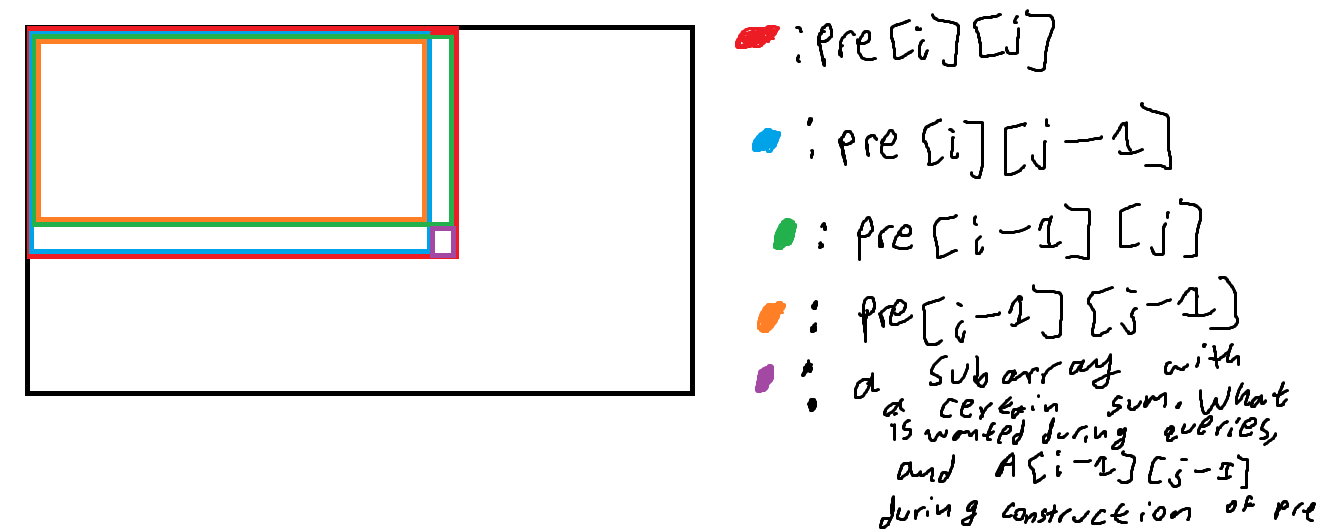 : pre[i][j]
: pre[i][j-1]
: pre[i-1][j]
: pre[i-1][j-1]
: a subarray with
a certain sum. What
is wanted during queries,
and A[i-1][j-1]
during construction of pre